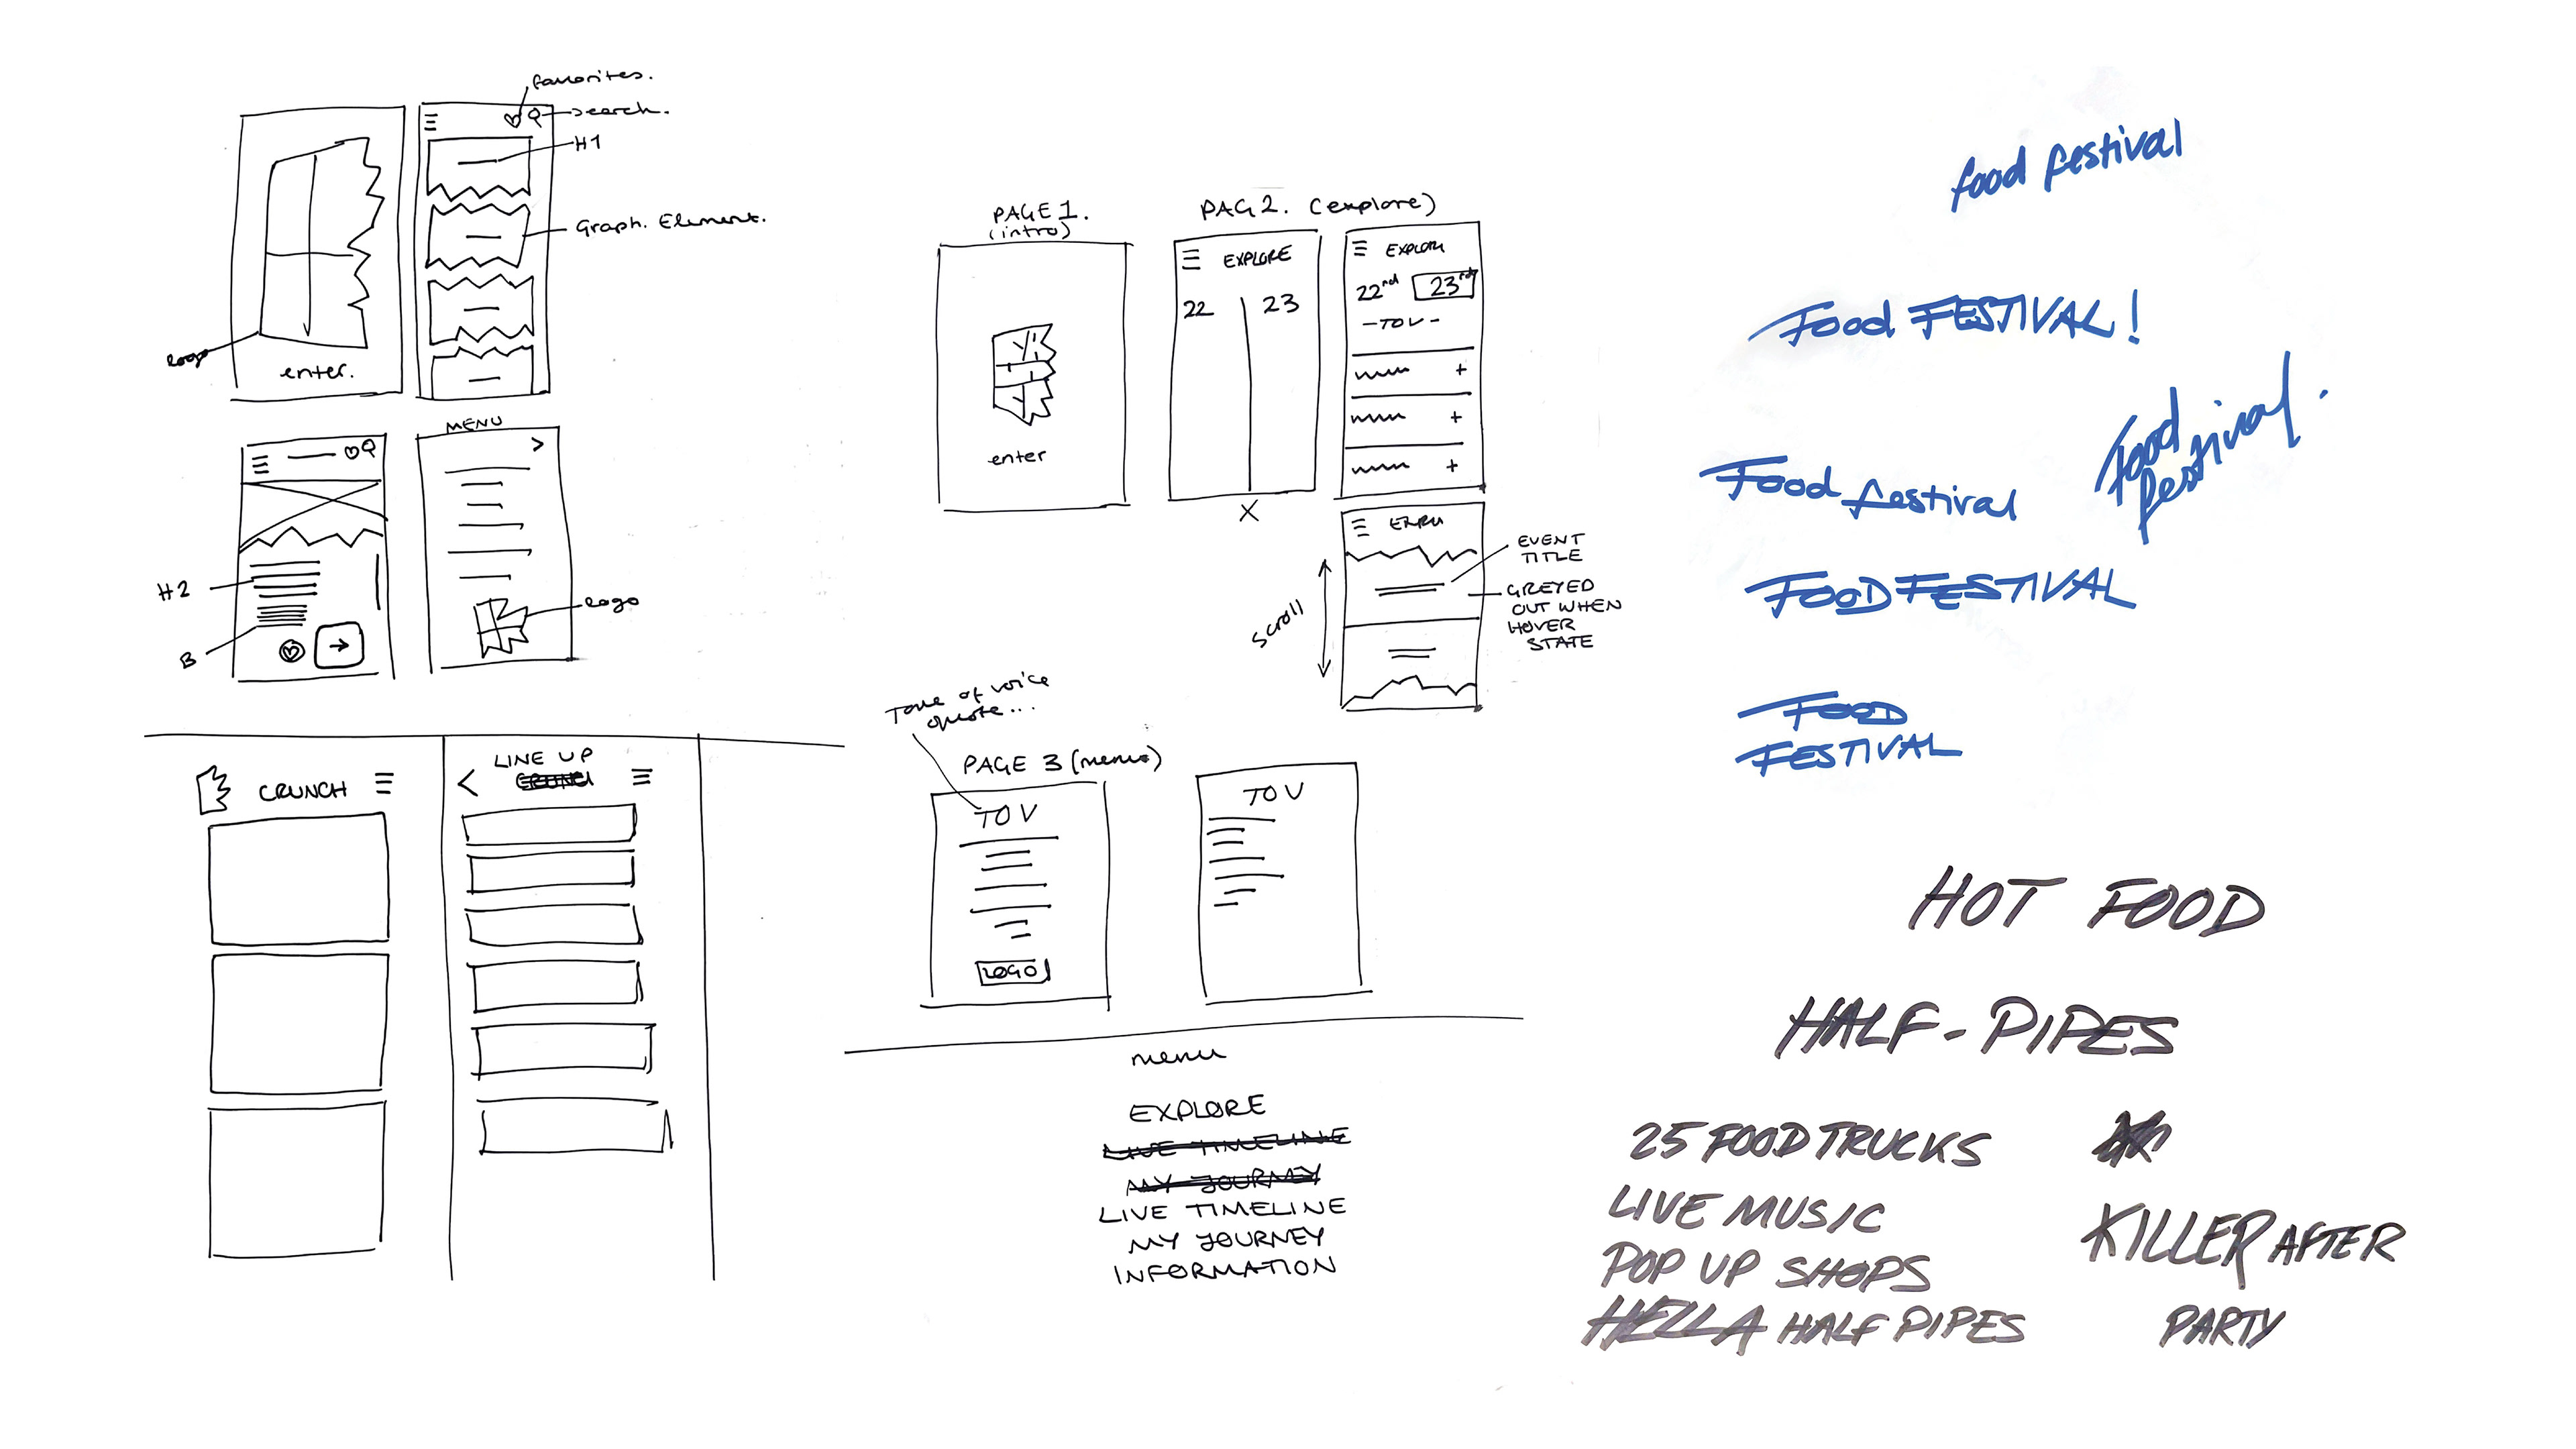 favorites.
search.
H1
Graph. Element.
Logo
enter.
MENU
H2
B
Logo
CRUNCH
LINE UP
PAGE 1.
(intro)
enter
PAG 2. (explore)
EXPLORE
22 23
X
EXPLORE
22nd 23rd
-TOV-
+
+
+
scroll
EVENT
TITLE
GREYED
OUT WHEN
HOVER
STATE
Tone of voice
quote...
PAGE 3 (menu)
TOV
LOGO
TOV
menu
EXPLORE
LIVE TIMELINE
MY JOURNEY
LIVE TIMELINE
MY JOURNEY
INFORMATION
food festival
Food FESTIVAL!
Food festival
Food
festival.
FOOD FESTIVAL
FOOD
FESTIVAL
HOT FOOD
HALF-PIPES
25 FOOD TRUCKS
LIVE MUSIC
POP UP SHOPS
HELLA HALF PIPES
KILLER AFTER
PARTY